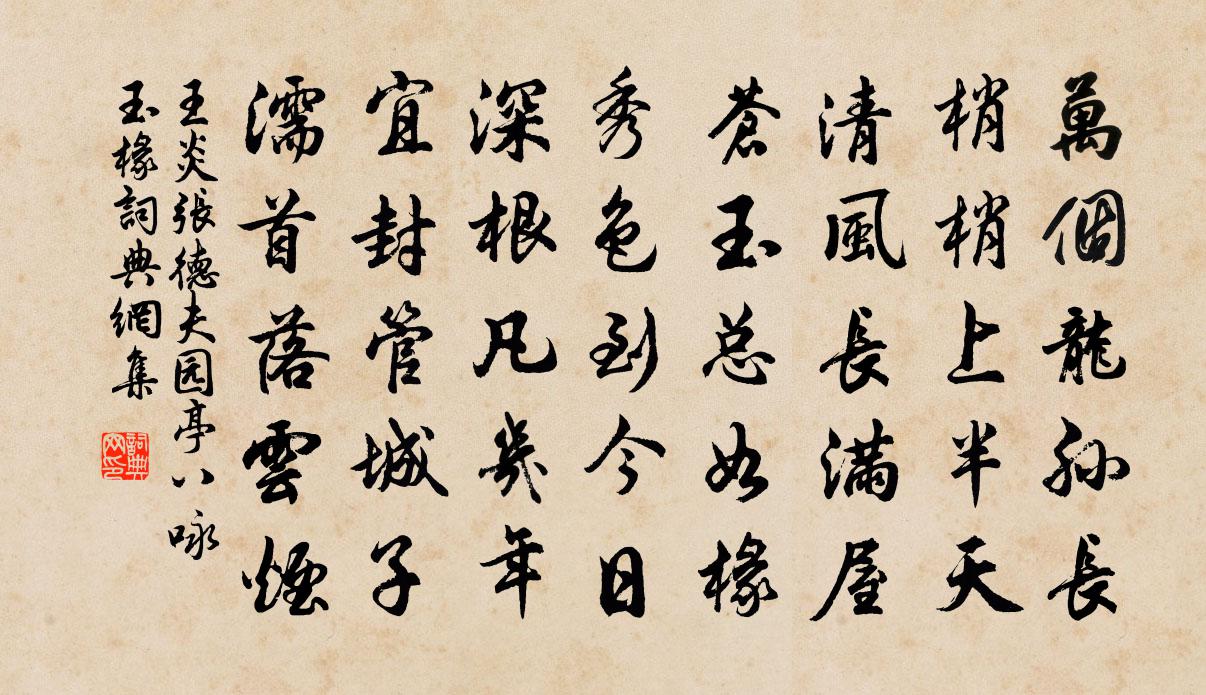 萬個龍孙長
梢梢上半天
清風長滿屋
蒼玉总如椽
秀色到今日
深根凡幾年
宜封管城子
濡首落雲煙
王炎張德夫园亭八咏
玉椽詞典網集
詞典网印